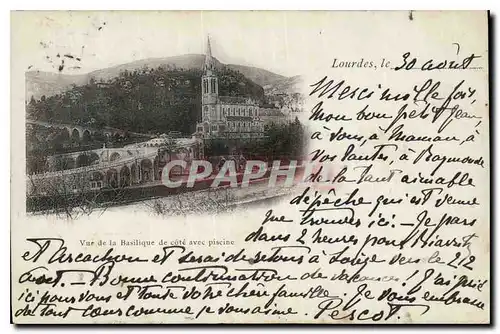 Lourdes, le 30 août
Merci mille fois,
mon bon petit Jean,
à vous, à Maman, à
vos tantes, à Raymonde
de la tant aimable
dépêche qui est venue
me trouver ici. Je pars
dans 2 heures pour Biarritz
CPArama.com
Vue de la Basilique de côté avec piscine
et Arcachon et serai de retour à vers le 2/2
août. Bonne continuation de vacances! J'ai prié
ici pour vous et toute votre chère famille. Je vous embrasse
de tout cœur comme je vous aime. Pescot